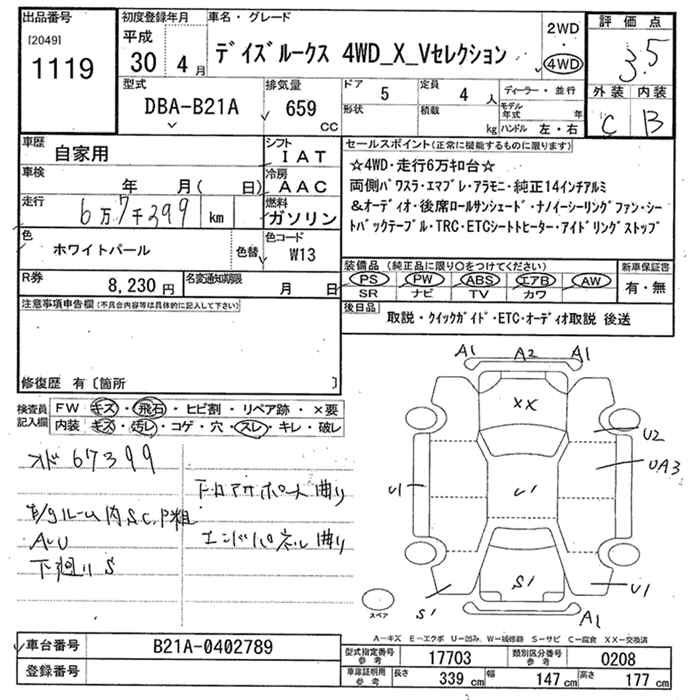 出品番号
[2049]
1119
初度登録年月
平成
30 4 月
車名・グレード
デイズルークス 4WD_X_Vセレクション
2WD
・
4WD
評価点
3.5
外装 内装
C B
型式
DBA-B21A
排気量
659
CC
ドア 5
形状
定員 4 人
積載 kg
ディーラー・並行
モデル年式 年
ハンドル 左・右
車歴
自家用
シフト
IAT
車検
年 月( 日)
冷房
AAC
走行
6万7千399 km
燃料
ガソリン
色
ホワイトパール
色替
色コード
W13
R券
8,230円
名変通知期限
月 日
セールスポイント(正常に機能するものに限ります)
☆4WD・走行6万キロ台☆
両側パワスラ・エマブレ・アラモニ・純正14インチアルミ
&オーディオ・後席ロールサンシェード・ナノイーシーリングファン・シー
トバックテーブル・TRC・ETCシートヒーター・アイドリングストップ
装備品(純正品に限り○をつけてください)
PS PW ABS エアB AW
SR ナビ TV カワ
新車保証書
有・無
後日品
取説・クイックガイド・ETC・オーディオ取説 後送
注意事項申告欄(不具合内容等は具体的に記入して下さい)
修復歴 有〔箇所 〕
検査員
記入欄
FW キズ・飛石・ヒビ割・リペア跡・×要
内装 キズ・汚レ・コゲ・穴・スレ・キレ・破レ
メド 67399
下ロアサポート曲り
E/gルーム内SC,P粗
エンドパネル曲り
AU
下廻りS
A1 A2 A1
XX
U2
UA3
U1
U1
S1
S1
U1
A1
スペア
A－キズ E－エクボ U－凹み W－補修跡 S－サビ C－腐食 XX－交換済
車台番号 B21A-0402789
登録番号
型式指定番号
参考
17703
類別区分番号
参考
0208
車庫証明用
参考
長さ 339 cm 幅 147 cm 高さ 177 cm